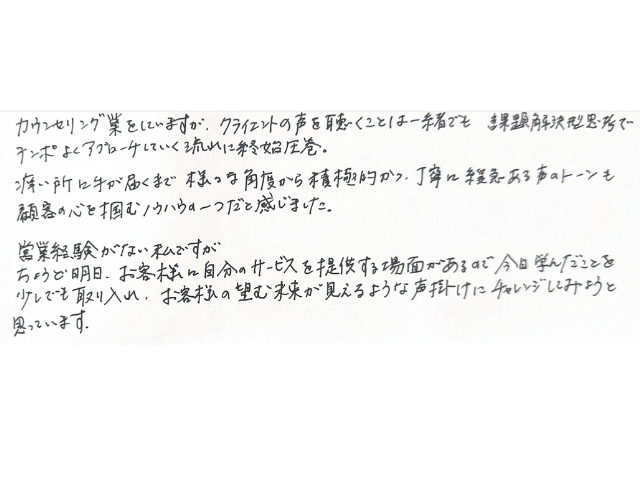 カウンセリング業をしていますが、クライエントの声を聴くことは一緒でも 課題解決型思考で
テンポよくアプローチしていく流れに終始圧巻。
痒い所に手が届くまで 様々な角度から積極的かつ、丁寧に緩急ある声のトーンも
顧客の心を掴むノウハウの一つだと感じました。
営業経験がない私ですが
ちょうど明日、お客様に自分のサービスを提供する場面があるので今日学んだことを
少しでも取り入れ、お客様の望む未来が見えるような声掛けにチャレンジしてみようと
思っています。